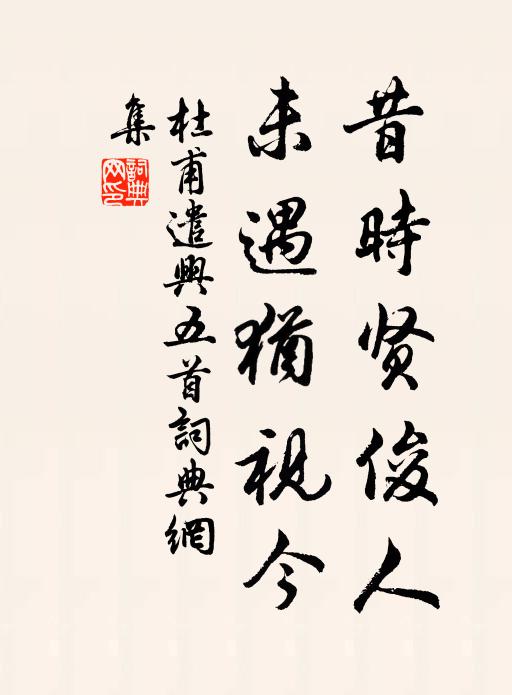 昔時贤俊人
未遇猶視今
杜甫遣興五首詞典網
集
詞典网印